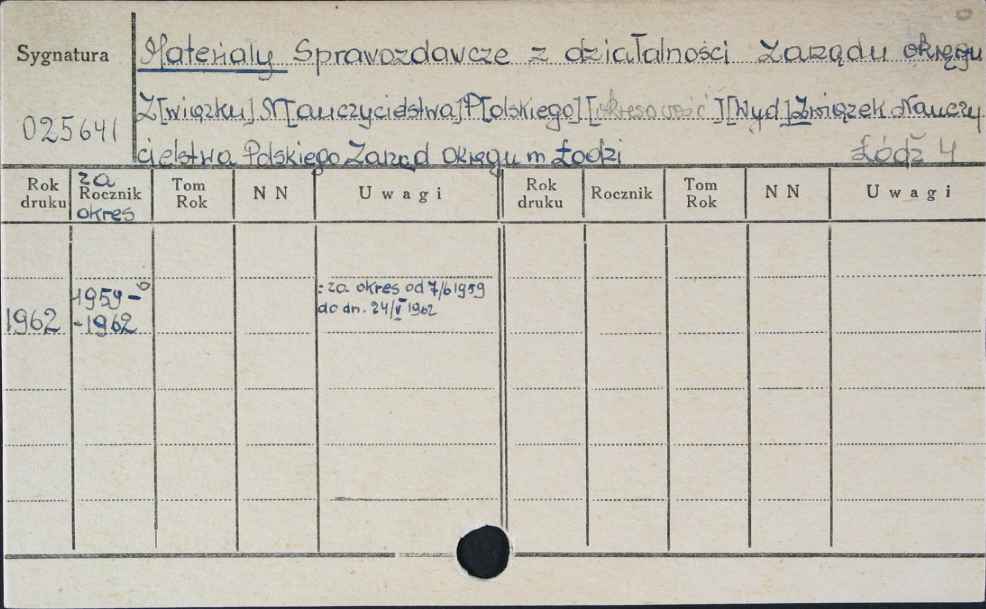 Sygnatura
025641
Materiały Sprawozdawcze z działalności Zarządu okręgu
Z[wiązku] N[auczycielstwa] P[olskiego] [okresowość] [Wyd] Związek Nauczy
cielstwa Polskiego Zarząd Okręgu m Łodzi Łódź 4
Rok druku za Rocznik okres Tom Rok NN Uwagi Rok druku Rocznik Tom Rok NN Uwagi
1962 1959- -1962 : za okres od 7/6 1959
do dn. 24/V 1962